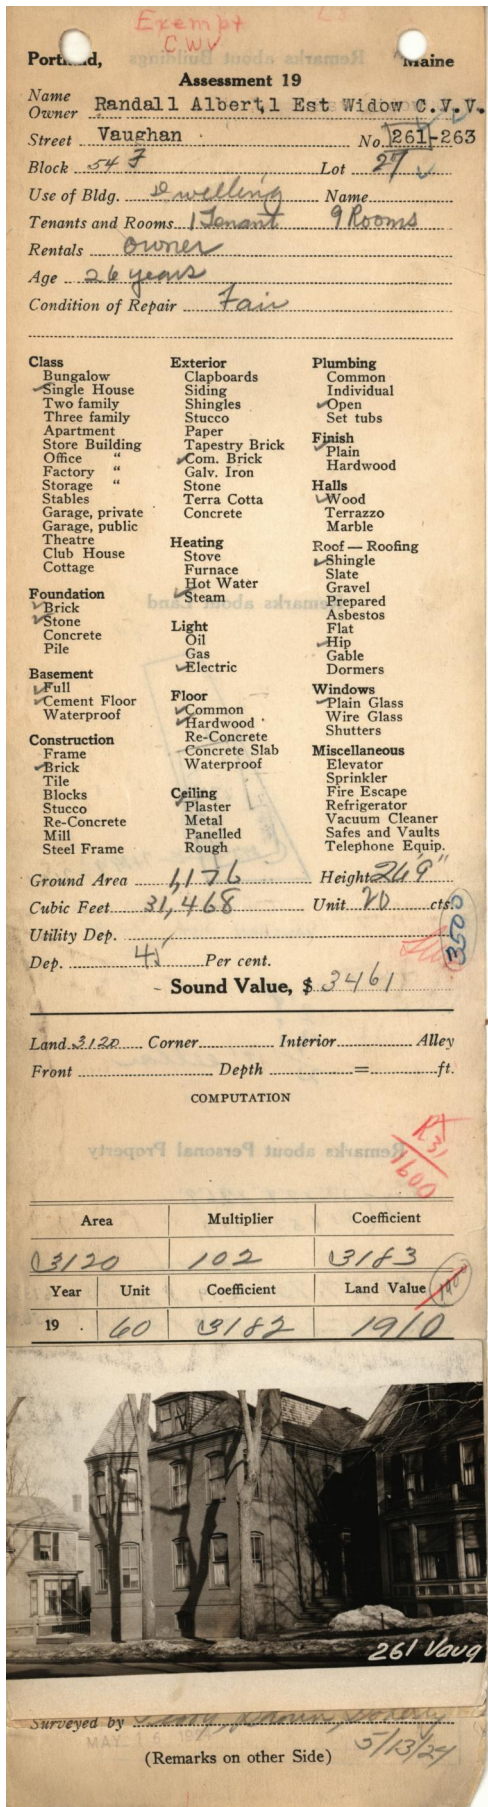 Exempt
C.W.V
Portland, Maine
Assessment 19
Name
Owner Randall Albert,l Est Widow C.V.V.
Street Vaughan No. 261-263
Block 54 F Lot 27
Use of Bldg. Dwelling Name
Tenants and Rooms 1 Tenant 9 Rooms
Rentals Owner
Age 26 years
Condition of Repair Fair
Class
Bungalow
Single House
Two family
Three family
Apartment
Store Building
Office "
Factory "
Storage "
Stables
Garage, private
Garage, public
Theatre
Club House
Cottage
Foundation
Brick
Stone
Concrete
Pile
Basement
Full
Cement Floor
Waterproof
Construction
Frame
Brick
Tile
Blocks
Stucco
Re-Concrete
Mill
Steel Frame
Exterior
Clapboards
Siding
Shingles
Stucco
Paper
Tapestry Brick
Com. Brick
Galv. Iron
Stone
Terra Cotta
Concrete
Heating
Stove
Furnace
Hot Water
Steam
Light
Oil
Gas
Electric
Floor
Common
Hardwood
Re-Concrete
Concrete Slab
Waterproof
Ceiling
Plaster
Metal
Panelled
Rough
Plumbing
Common
Individual
Open
Set tubs
Finish
Plain
Hardwood
Halls
Wood
Terrazzo
Marble
Roof — Roofing
Shingle
Slate
Gravel
Prepared
Asbestos
Flat
Hip
Gable
Dormers
Windows
Plain Glass
Wire Glass
Shutters
Miscellaneous
Elevator
Sprinkler
Fire Escape
Refrigerator
Vacuum Cleaner
Safes and Vaults
Telephone Equip.
Ground Area 1,176 Height 26'9"
Cubic Feet 31,468 Unit 20 cts.
Utility Dep. 3500
Dep. 45 Per cent.
Sound Value, $ 3461
Land 3120 Corner Interior Alley
Front Depth = ft.
COMPUTATION
31
1600
Area Multiplier Coefficient
3120 102 3183
Year Unit Coefficient Land Value
19 60 3182 1910
261 Vaug
Surveyed by
MAY 16
5/13/24
(Remarks on other Side)